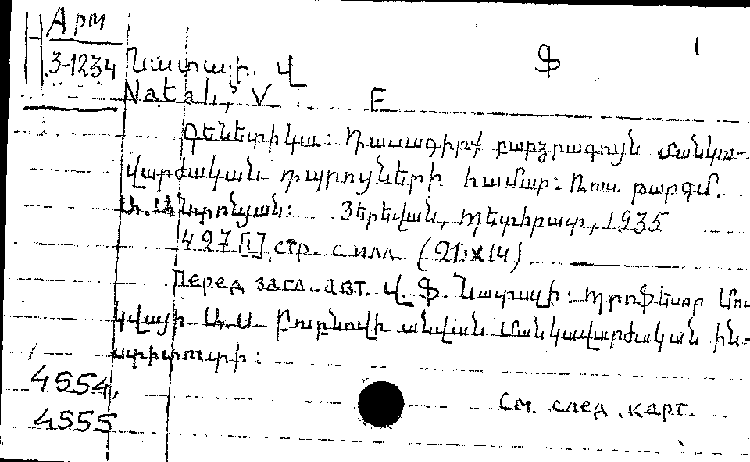 Арм
3-1234
Նատալի, Վ Ֆ 1
Natali, V F
Գենետիկա: Դասագիրք բարձրագույն մանկա-
վարժական դպրոցների համար: Ռուս. թարգմ.
Երեվան, Պետհրատ, 1935
427 [1] стр. с илл. (21x14)
Перед загл. авт. Վ. Ֆ. Նատալի: Պրոֆեսոր Մոս-
կվայի Ա. Ս. Բուբնովի անվան Մանկավարժական ին-
ստիտուտի:
4554,
4555
См. след. карт.